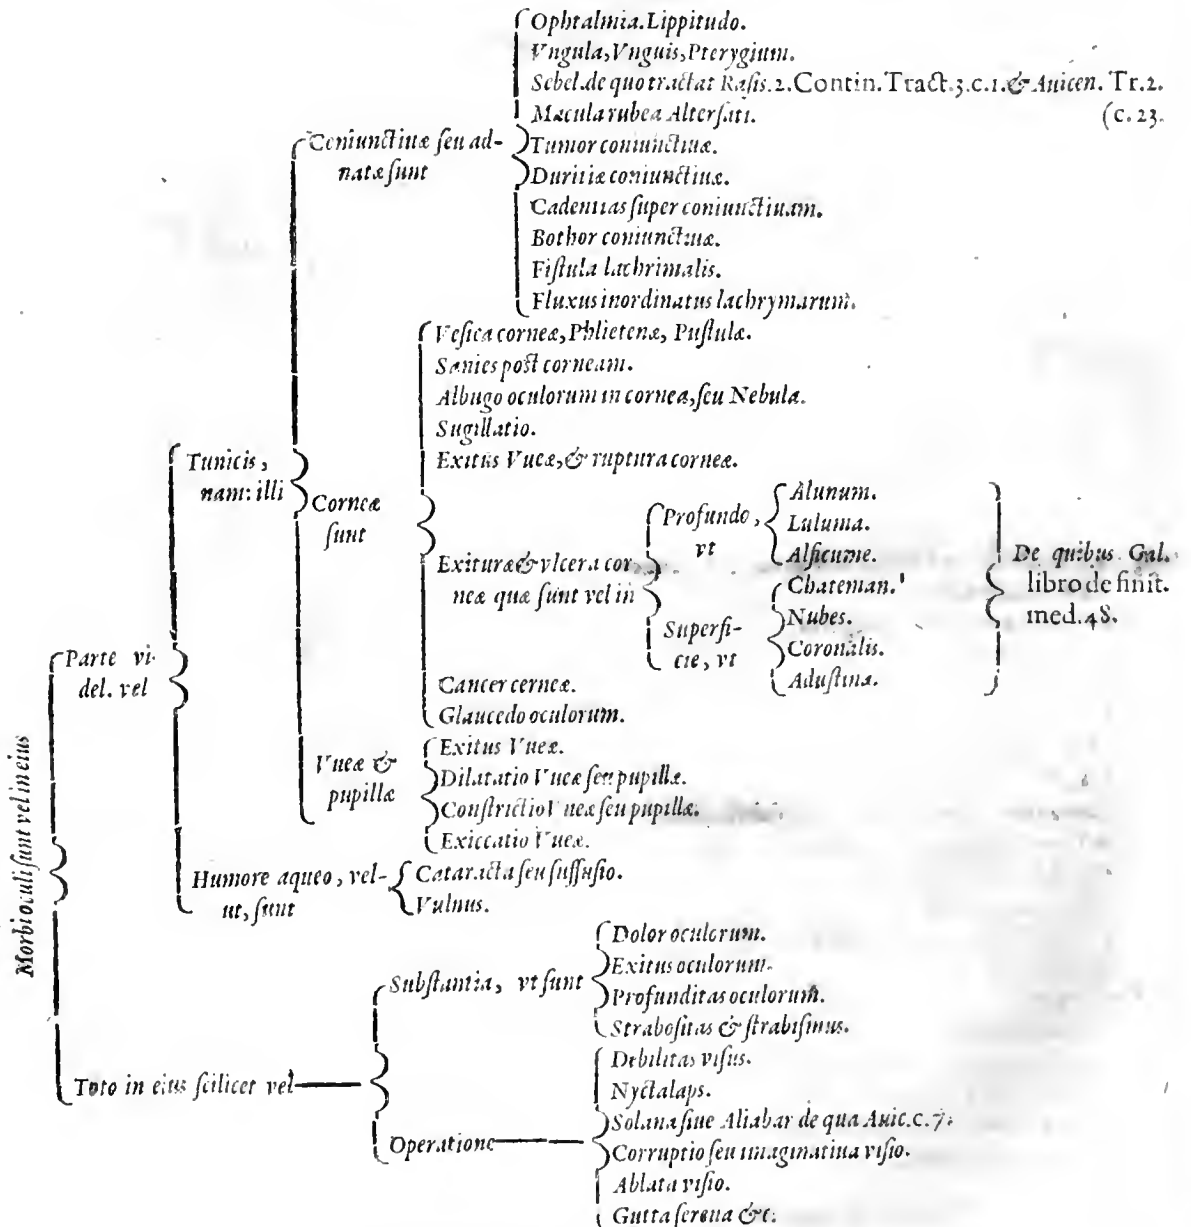 Morbi oculi sunt vel in eius
Parte vi-
del. vel
Tunicis,
nam: illi
Coniunctiuæ ſeu ad-
natæ ſunt
Ophtalmia. Lippitudo.
Vngula, Vnguis, Pterygium.
Sebel. de quo tractat Raſis. 2. Contin. Tract. 3. c. 1. & Auicen. Tr. 2.
(c. 23.
Macula rubea Alterfati.
Tumor coniunctiuæ.
Duritiæ coniunctiuæ.
Cadentias ſuper coniunctiuam.
Bothor coniunctiuæ.
Fiſtula lachrimalis.
Fluxus inordinatus lachrymarum.
Corneæ
ſunt
Veſica corneæ, Phlietenæ, Puſtulæ.
Sanies poſt corneam.
Albugo oculorum in cornea, ſeu Nebula.
Sugillatio.
Exitus Vueæ, & ruptura corneæ.
Exituræ & vlcera cor-
neæ quæ ſunt vel in
Profundo,
vt
Alunum.
Luluma.
Alficume.
Superfi-
cie, vt
Chateman.
Nubes.
Coronalis.
Aduſtina.
De quibus Gal.
libro de finit.
med. 48.
Cancer cerneæ.
Glaucedo oculorum.
Vueæ &
pupillæ
Exitus Vueæ.
Dilatatio Vueæ ſeu pupillæ.
Conſtrictio Vueæ ſeu pupillæ.
Exiccatio Vueæ.
Humore aqueo, vel-
ut, ſunt
Cataracta ſeu ſuffuſio.
Vulnus.
Toto in eius ſcilicet vel
Subſtantia, vt ſunt
Dolor oculorum.
Exitus oculorum.
Profunditas oculorum.
Straboſitas & ſtrabiſmus.
Operatione
Debilitas viſus.
Nyctalaps.
Solana ſiue Aliabar de qua Auic. c. 7.
Corruptio ſeu imaginatiua viſio.
Ablata viſio.
Gutta ſerena &c.